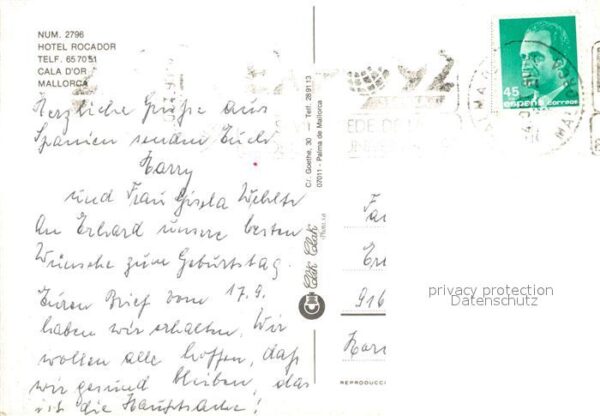 NUM. 2796
HOTEL ROCADOR
TELF. 657051
CALA D'OR
MALLORCA
Herzliche Grüße aus
Spanien senden Euch
Harry
und Frau Gisela
An Erhard unsere besten
Wünsche zum Geburtstag.
Euren Brief vom 17.9.
haben wir erhalten. Wir
wollen alle hoffen, daß
wir gesund bleiben, das
ist die Hauptsache!
C/. Goethe, 30 — Telf. 289113
07011 - Palma de Mallorca
Clak Clak
REPRODUCC
45
españa correos
916
privacy protection
Datenschutz